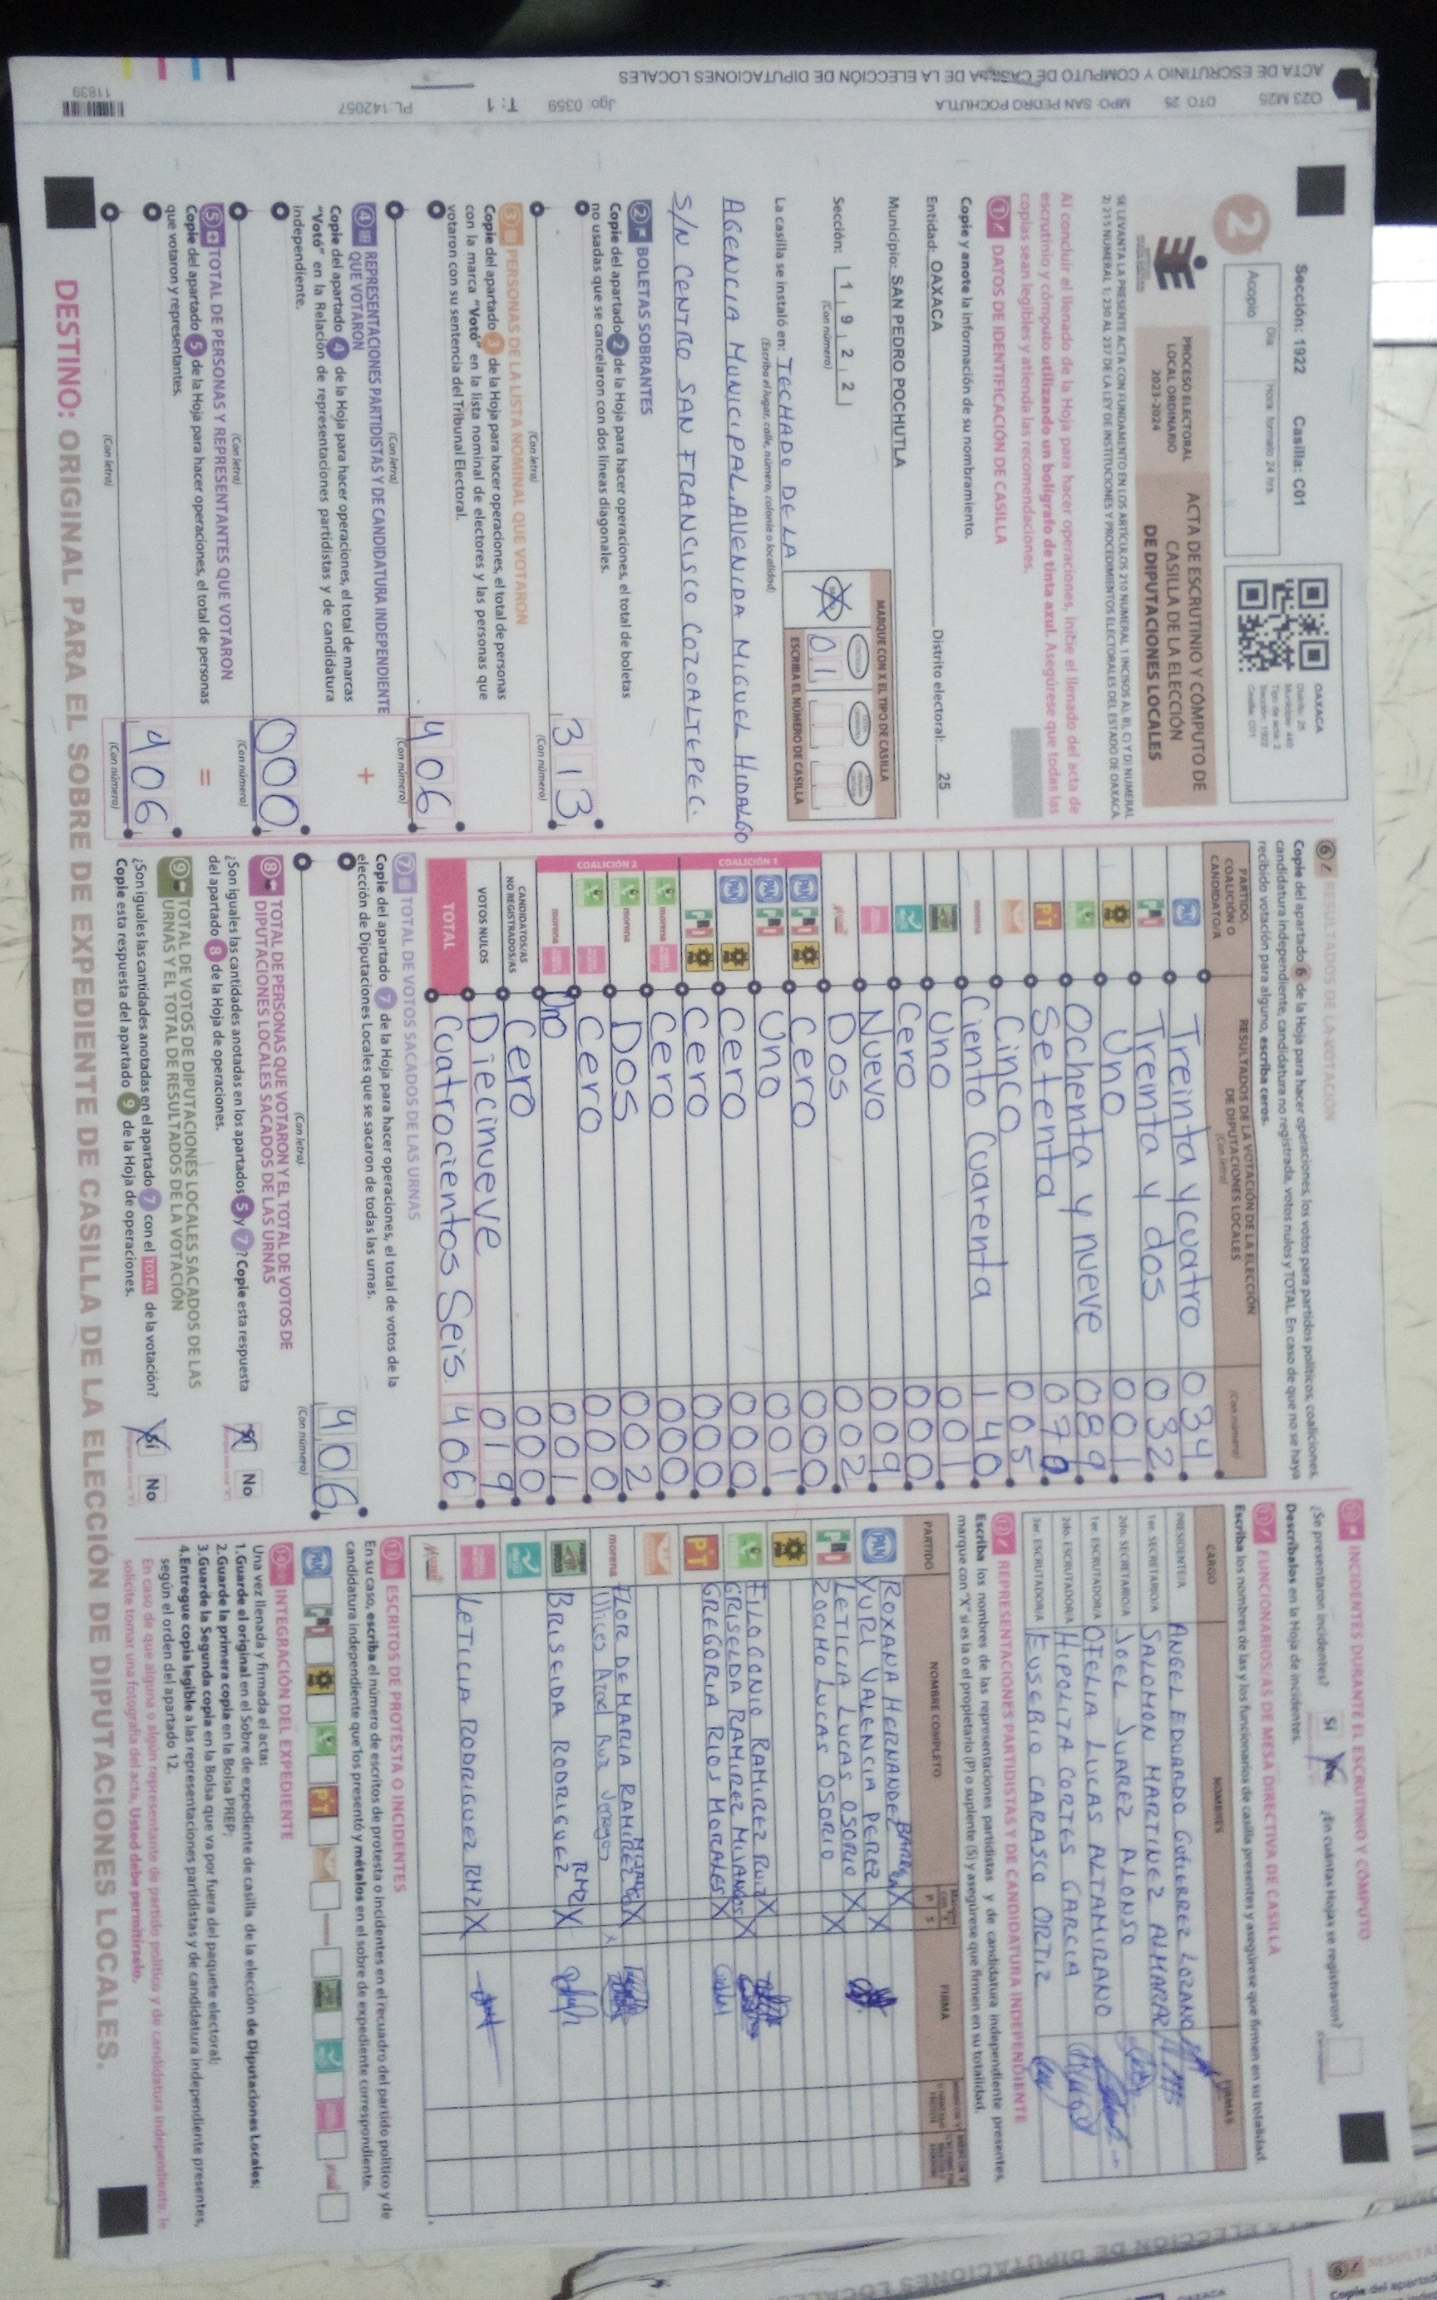 Q23 M25 DTO 25 MPO: SAN PEDRO POCHUTLA Jgo: 0359 T: 1 PL-142057 11839
ACTA DE ESCRUTINIO Y COMPUTO DE CASILLA DE LA ELECCIÓN DE DIPUTACIONES LOCALES
Sección: 1922 Casilla: C01
Acopio Día Hora: formato 24 hrs.
OAXACA
Distrito: 25
Tipo de acta: 2
Sección: 1922
Casilla: C01
2
PROCESO ELECTORAL
LOCAL ORDINARIO
2023-2024
ACTA DE ESCRUTINIO Y CÓMPUTO DE
CASILLA DE LA ELECCIÓN
DE DIPUTACIONES LOCALES
SE LEVANTA LA PRESENTE ACTA CON FUNDAMENTO EN LOS ARTÍCULOS 210 NUMERAL 1 INCISOS A), B), C) Y D) NUMERAL
2; 215 NUMERAL 1; 230 AL 237 DE LA LEY DE INSTITUCIONES Y PROCEDIMIENTOS ELECTORALES DEL ESTADO DE OAXACA.
Al concluir el llenado de la Hoja para hacer operaciones, inicie el llenado del acta de
escrutinio y cómputo utilizando un bolígrafo de tinta azul. Asegúrese que todas las
copias sean legibles y atienda las recomendaciones.
1 DATOS DE IDENTIFICACIÓN DE CASILLA
Copie y anote la información de su nombramiento.
Entidad: OAXACA Distrito electoral: 25
Municipio: SAN PEDRO POCHUTLA
Sección: 1 9 2 2
(Con número)
MARQUE CON X EL TIPO DE CASILLA
ESCRIBA EL NÚMERO DE CASILLA
01
La casilla se instaló en: TECHADO DE LA
(Escriba el lugar, calle, número, colonia o localidad)
AGENCIA MUNICIPAL, AVENIDA MIGUEL HIDALGO
S/N CENTRO SAN FRANCISCO COZOALTEPEC.
2 BOLETAS SOBRANTES
Copie del apartado 2 de la Hoja para hacer operaciones, el total de boletas
no usadas que se cancelaron con dos líneas diagonales.
313
(Con letra) (Con número)
3 PERSONAS DE LA LISTA NOMINAL QUE VOTARON
Copie del apartado 3 de la Hoja para hacer operaciones, el total de personas
con la marca "Votó" en la lista nominal de electores y las personas que
votaron con su sentencia del Tribunal Electoral.
406
(Con letra) (Con número)
4 REPRESENTACIONES PARTIDISTAS Y DE CANDIDATURA INDEPENDIENTE
QUE VOTARON
+
Copie del apartado 4 de la Hoja para hacer operaciones, el total de marcas
"Votó" en la Relación de representaciones partidistas y de candidatura
independiente.
000
(Con letra) (Con número)
5 TOTAL DE PERSONAS Y REPRESENTANTES QUE VOTARON
=
Copie del apartado 5 de la Hoja para hacer operaciones, el total de personas
que votaron y representantes.
406
(Con letra) (Con número)
6 RESULTADOS DE LA VOTACIÓN
Copie del apartado 6 de la Hoja para hacer operaciones, los votos para partidos políticos, coaliciones,
candidatura independiente, candidatura no registrada, votos nulos y TOTAL. En caso de que no se haya
recibido votación para alguno, escriba ceros.
PARTIDO, COALICIÓN O CANDIDATO/A
RESULTADOS DE LA VOTACIÓN DE LA ELECCIÓN
DE DIPUTACIONES LOCALES
(Con letra) (Con número)
PAN Treinta y cuatro 034
PRI Treinta y dos 032
Uno 001
Ochenta y nueve 089
PT Setenta 070
Cinco 005
morena Ciento Cuarenta 140
Uno 001
Cero 000
Nuevo 009
Dos 002
COALICIÓN 1
PAN PRI Cero 000
PAN PRI Uno 001
PAN Cero 000
PRI Cero 000
COALICIÓN 2
morena Cero 000
morena Dos 002
Cero 000
morena Uno 001
CANDIDATOS/AS
NO REGISTRADOS/AS Cero 000
VOTOS NULOS Diecinueve 019
TOTAL Cuatrocientos Seis. 406
7 TOTAL DE VOTOS SACADOS DE LAS URNAS
Copie del apartado 7 de la Hoja para hacer operaciones, el total de votos de la
elección de Diputaciones Locales que se sacaron de todas las urnas.
406
(Con letra) (Con número)
8 TOTAL DE PERSONAS QUE VOTARON Y EL TOTAL DE VOTOS DE
DIPUTACIONES LOCALES SACADOS DE LAS URNAS
¿Son iguales las cantidades anotadas en los apartados 5 y 7? Copie esta respuesta
del apartado 8 de la Hoja de operaciones.
Sí No
9 TOTAL DE VOTOS DE DIPUTACIONES LOCALES SACADOS DE LAS
URNAS Y EL TOTAL DE RESULTADOS DE LA VOTACIÓN
¿Son iguales las cantidades anotadas en el apartado 7 con el TOTAL de la votación?
Copie esta respuesta del apartado 9 de la Hoja de operaciones.
Sí No
10 INCIDENTES DURANTE EL ESCRUTINIO Y CÓMPUTO
¿Se presentaron incidentes? Sí No ¿En cuántas Hojas se registraron?
Descríbalos en la Hoja de incidentes.
11 FUNCIONARIOS/AS DE MESA DIRECTIVA DE CASILLA
Escriba los nombres de las y los funcionarios de casilla presentes y asegúrese que firmen en su totalidad.
CARGO NOMBRES FIRMAS
PRESIDENTE/A ANGEL EDUARDO GUTIERREZ LOZANO
1er. SECRETARIO/A SALOMON MARTINEZ ALMARAZ
2do. SECRETARIO/A JOEL JUAREZ ALONSO
1er. ESCRUTADOR/A OFELIA LUCAS ALTAMIRANO
2do. ESCRUTADOR/A HIPOLITA CORTES GARCIA
3er. ESCRUTADOR/A EUSERIO CARASCO ORTIZ
12 REPRESENTACIONES PARTIDISTAS Y DE CANDIDATURA INDEPENDIENTE
Escriba los nombres de las representaciones partidistas y de candidatura independiente presentes,
marque con "X" si es la o el propietario (P) o suplente (S) y asegúrese que firmen en su totalidad.
PARTIDO NOMBRE COMPLETO P S FIRMA
PAN ROXANA HERNANDEZ X
YURI VALENCIA PEREZ X
PRI LETICIA LUCAS OSORIO X
ROCIHO LUCAS OSORIO X
FILOGONIO RAMIREZ RUIZ X
GRISELDA RAMIREZ MIJANGOS X
PT GREGORIA RIOS MORALES X
morena FLOR DE MARIA RAMIREZ X
BRISEIDA RODRIGUEZ RMZ X
LETICIA RODRIGUEZ RMZ X
13 ESCRITOS DE PROTESTA O INCIDENTES
En su caso, escriba el número de escritos de protesta o incidentes en el recuadro del partido político y de
candidatura independiente que los presentó y métalos en el sobre de expediente correspondiente.
14 INTEGRACIÓN DEL EXPEDIENTE
Una vez llenada y firmada el acta:
1.Guarde el original en el Sobre de expediente de casilla de la elección de Diputaciones Locales;
2.Guarde la primera copia en la Bolsa PREP;
3.Guarde la Segunda copia en la Bolsa que va por fuera del paquete electoral;
4.Entregue copia legible a las representaciones partidistas y de candidatura independiente presentes,
según el orden del apartado 12.
En caso de que alguna o algún representante de partido político y de candidatura independiente, le
solicite tomar una fotografía del acta, Usted debe permitírselo.
DESTINO: ORIGINAL PARA EL SOBRE DE EXPEDIENTE DE CASILLA DE LA ELECCIÓN DE DIPUTACIONES LOCALES.